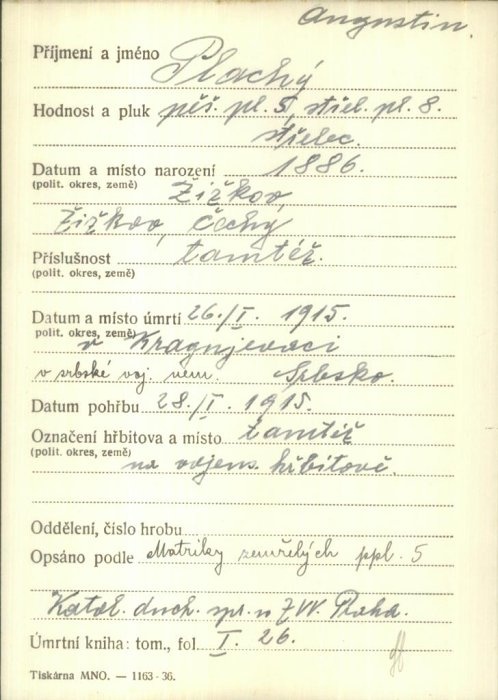 Augustin.
Příjmení a jméno Plachý
Hodnost a pluk pěš. pl. 5, střel. pl. 8.
střelec.
Datum a místo narození 1886.
(polit. okres, země) Žižkov,
Žižkov, Čechy
Příslušnost tamtéž.
(polit. okres, země)
Datum a místo úmrtí 26./I. 1915.
polit. okres, země) v Kragujevaci
v srbské voj. nem. Srbsko.
Datum pohřbu 28./I. 1915.
Označení hřbitova a místo tamtéž
(polit. okres, země) na vojens. hřbitově.
Oddělení, číslo hrobu
Opsáno podle Matriky zemřelých ppl. 5
Katol. duch. spr. u ZVV. Praha.
Úmrtní kniha: tom., fol. I. 26.
Tiskárna MNO. — 1163-36.